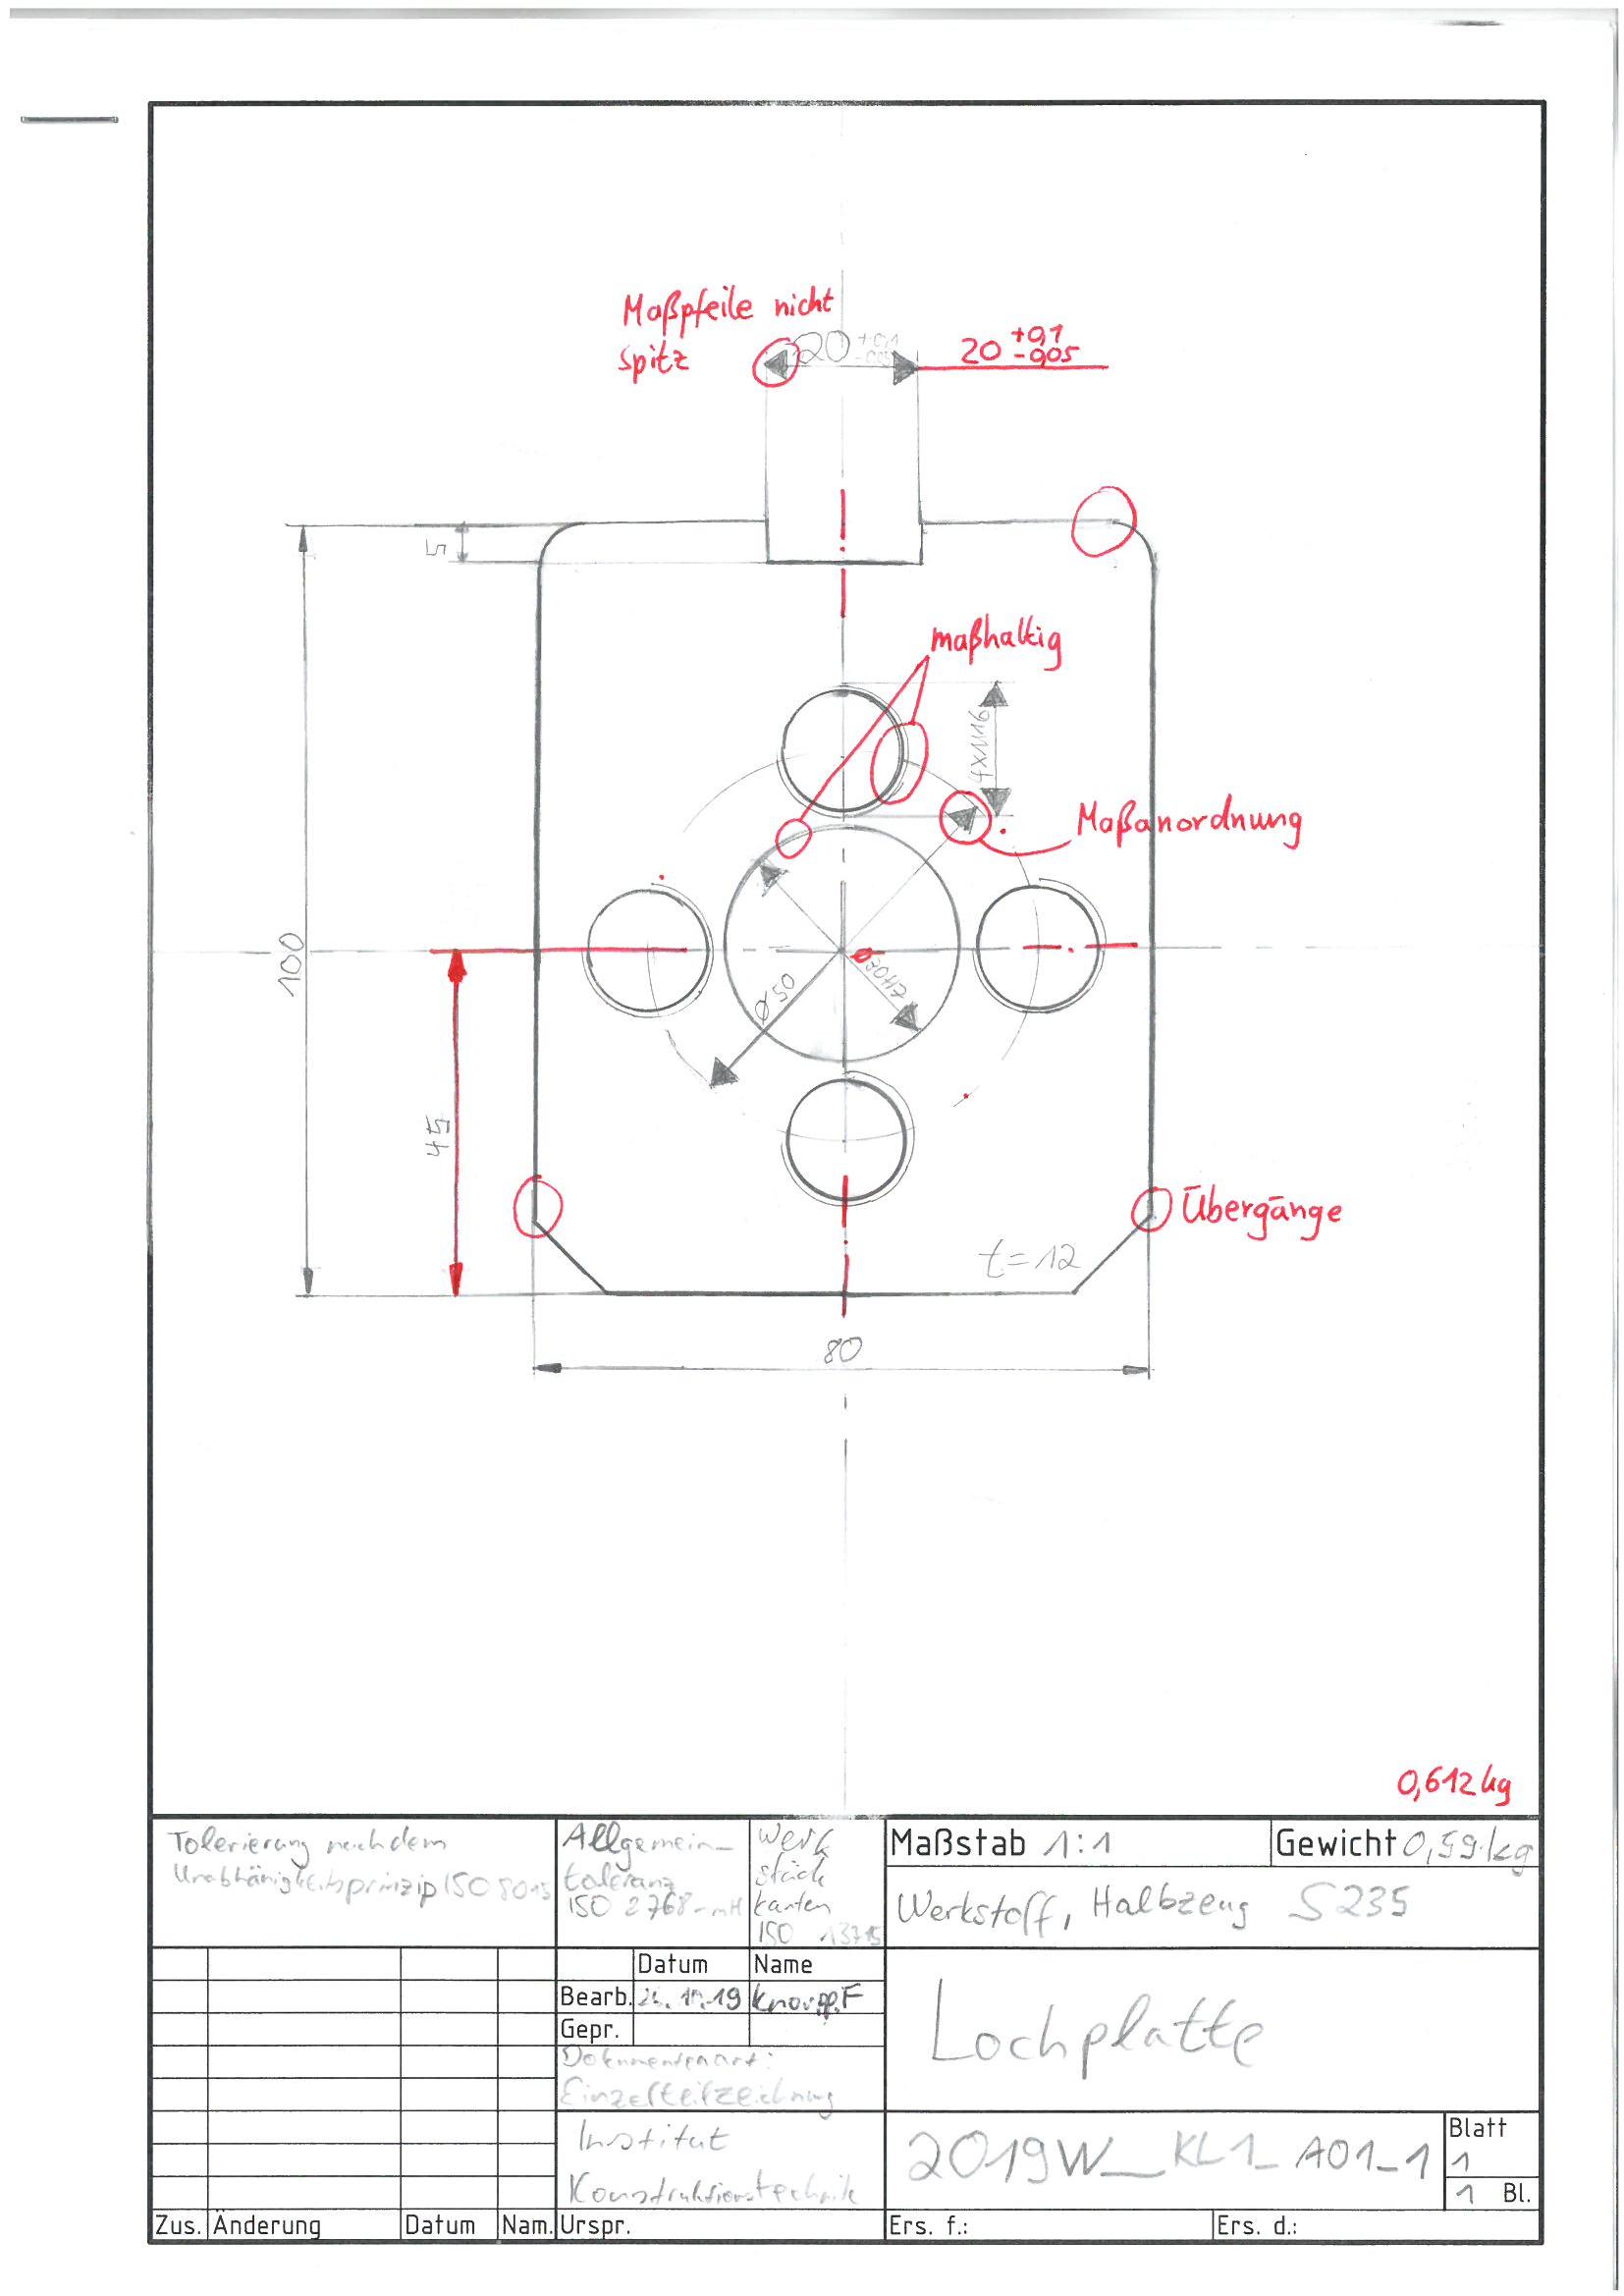 Maßpfeile nicht
spitz
20 +0,1 -0,05
20 +0,1 -0,05
5
maßhaltig
4xM16
Maßanordnung
100
⌀50
⌀30H7
45
Übergänge
t=12
80
0,612kg
Tolerierung nach dem
Unabhänigkeitsprinzip ISO 8015
Allgemein-
toleranz
ISO 2768-mH
Werk
stück
kanten
ISO 13715
Maßstab 1:1
Gewicht 0,59kg
Werkstoff, Halbzeug S235
Datum Name
Bearb. .19 Knorpp.F
Gepr.
Dokumentenart:
Einzelteilzeichnung
Lochplatte
Institut
Konstruktionstechnik
2019W_KL1_A01_1
Blatt
1
1 Bl.
Zus. Änderung Datum Nam. Urspr. Ers. f.: Ers. d.: